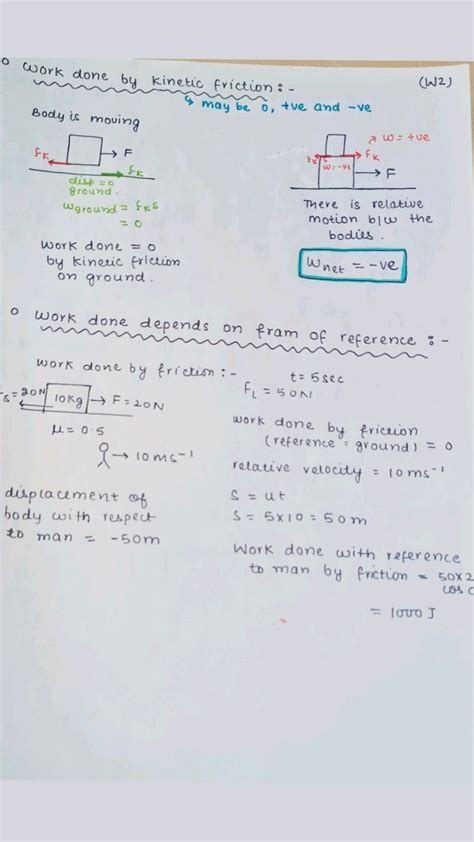 o Work done by kinetic friction :-
(W2)
↳ may be 0, +ve and -ve
Body is moving
fK
F
fK
disp = 0
ground.
Wground = fKS
= 0
Work done = 0
by kinetic friction
on ground.
W = +ve
fK
fK
W = -ve
F
There is relative
motion b/w the
bodies.
Wnet = -ve
o Work done depends on fram of reference :-
Work done by friction :-
S = 20N
10kg
F = 20N
μ = 0.5
10ms⁻¹
displacement of
body with respect
to man = -50m
t = 5sec
fL = 50N
Work done by friction
(reference = ground) = 0
relative velocity = 10ms⁻¹
S = ut
S = 5x10 = 50m
Work done with reference
to man by friction = 50x2
cos
= 1000J